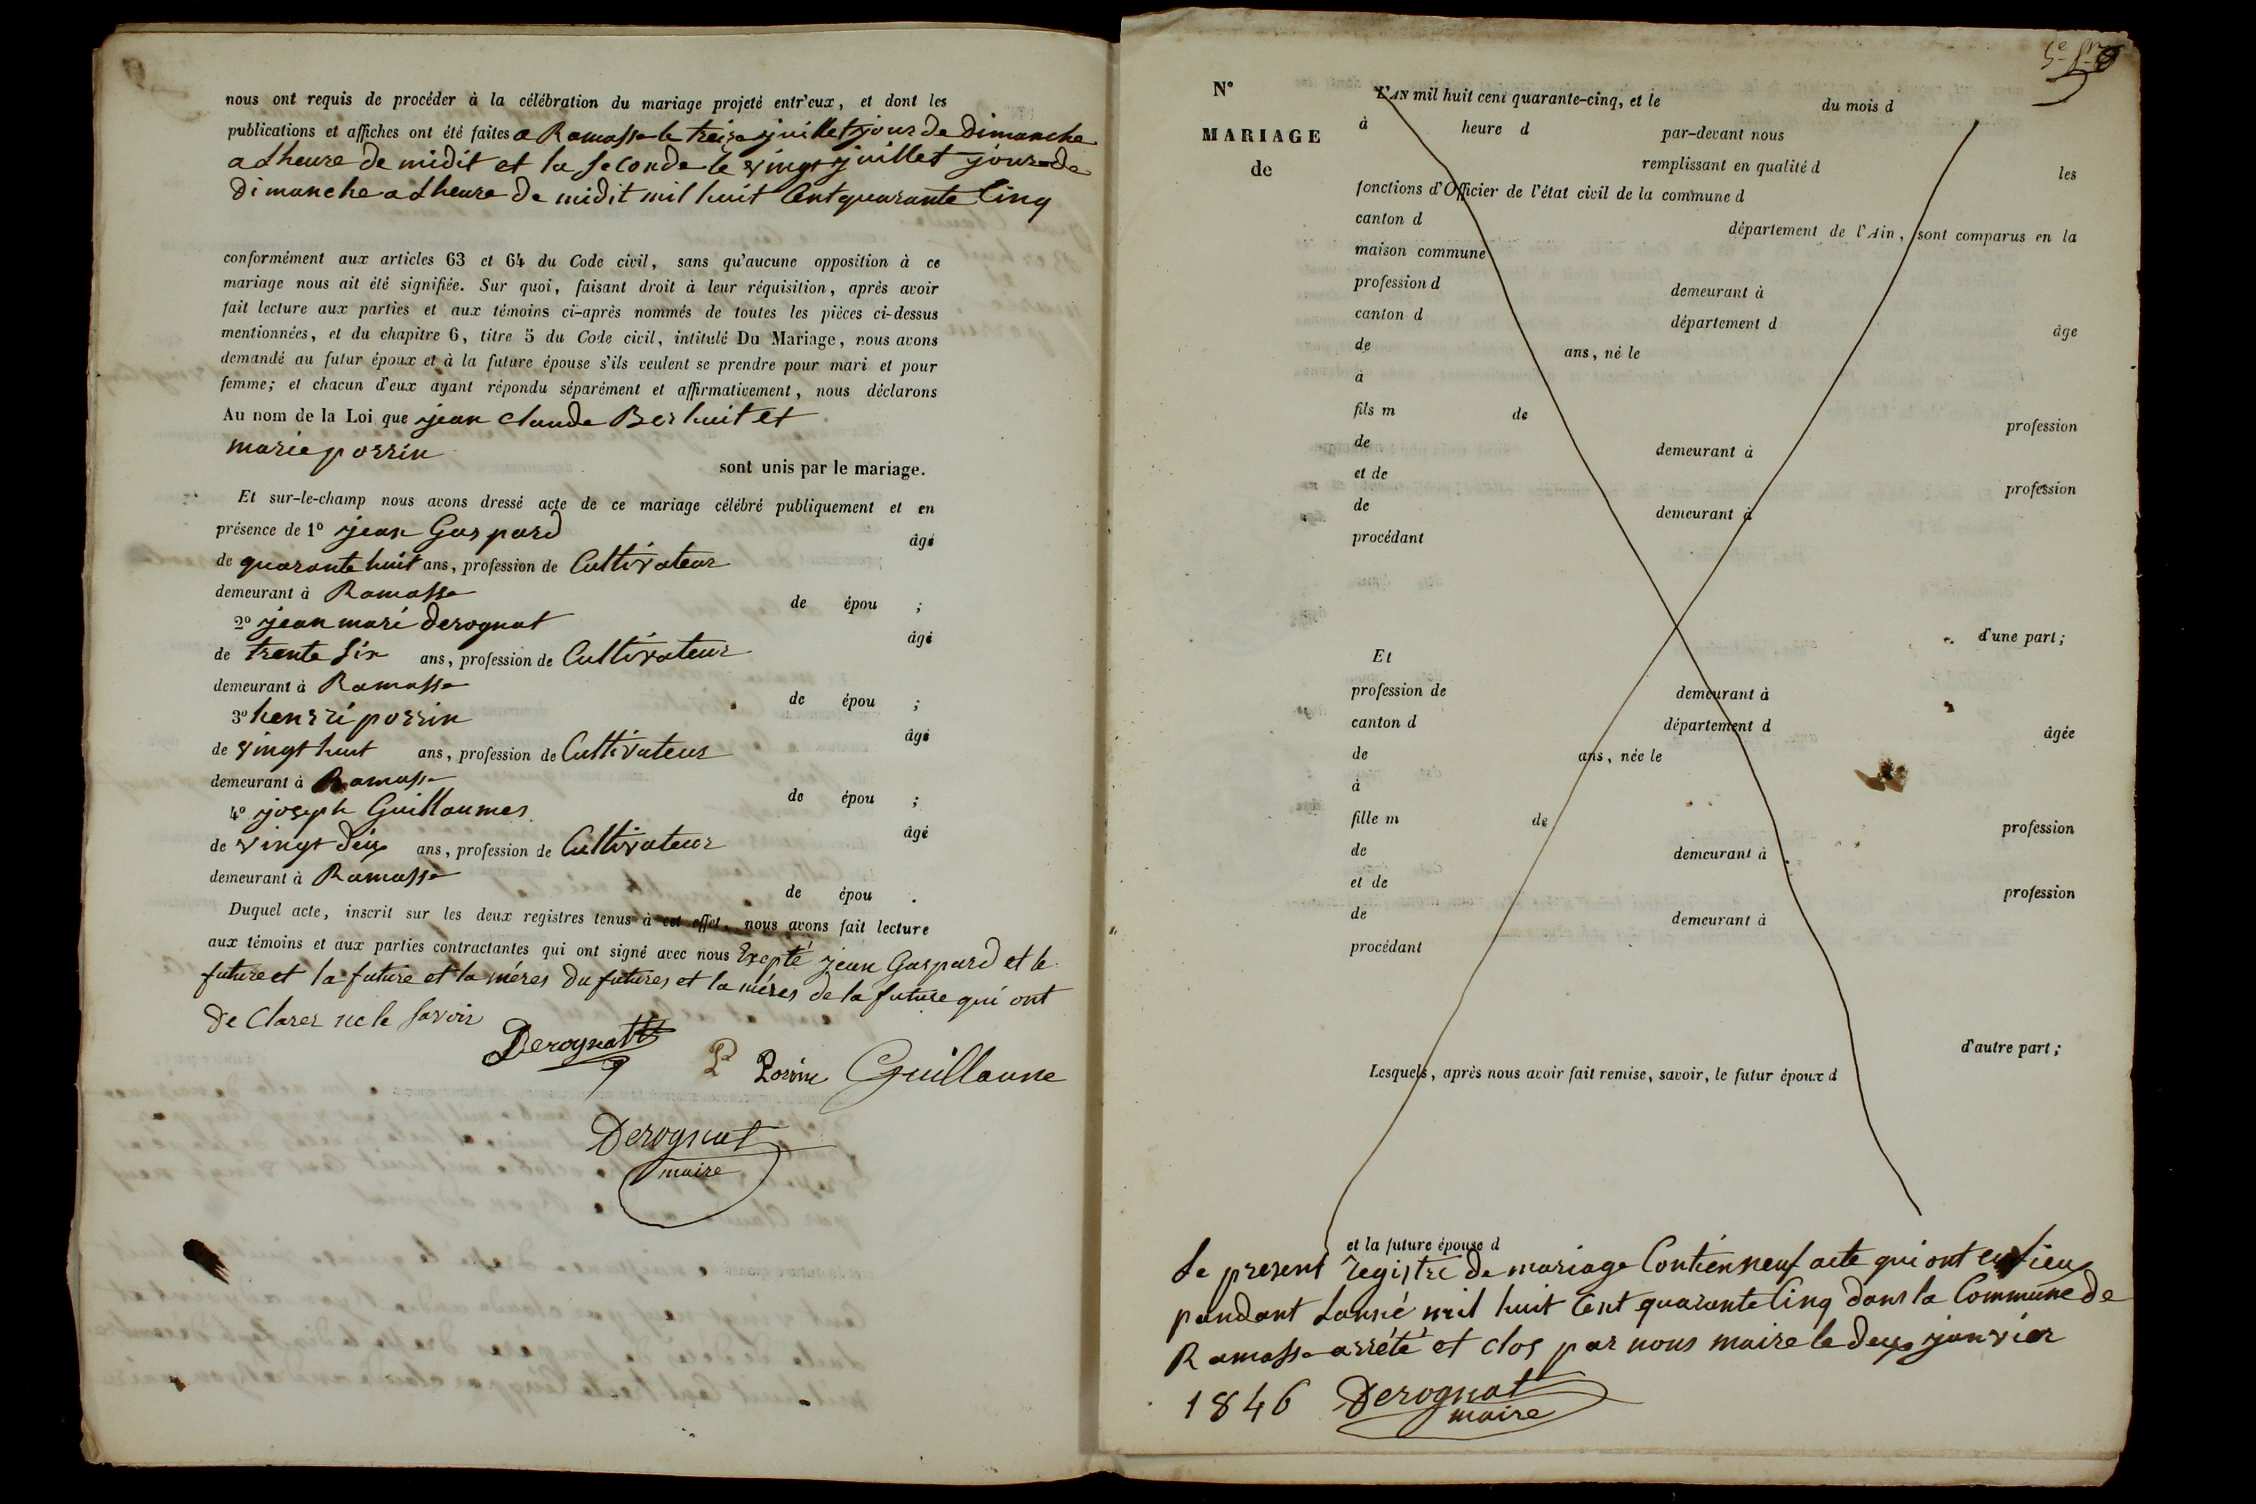 nous ont requis de procéder à la célébration du mariage projeté entr'eux, et dont les
publications et affiches ont été faites a Ramasse le treize juillet jour de Dimanche
a Lheure de midit et la seconde le vingt juillet jour de
Dimanche a Lheure de midit mil huit Cent quarante Cinq
conformément aux articles 63 et 64 du Code civil, sans qu'aucune opposition à ce
mariage nous ait été signifiée. Sur quoi, faisant droit à leur réquisition, après avoir
fait lecture aux parties et aux témoins ci-après nommés de toutes les pièces ci-dessus
mentionnées, et du chapitre 6, titre 5 du Code civil, intitulé Du Mariage, nous avons
demandé au futur époux et à la future épouse s'ils veulent se prendre pour mari et pour
femme; et chacun d'eux ayant répondu séparément et affirmativement, nous déclarons
Au nom de la Loi que jean claude Berhuit et
marie porrin
sont unis par le mariage.
Et sur-le-champ nous avons dressé acte de ce mariage célébré publiquement et en
présence de 1º jean Gaspard âgé
de quarante huit ans, profession de Cultivateur
demeurant à Ramasse de épou ;
2º jean marí derognat âgé
de trente six ans, profession de Cultivateur
demeurant à Ramasse de épou ;
3º henrri porrin âgé
de vingt huit ans, profession de Cultivateur
demeurant à Ramasse de épou ;
4º joseph Guillaumes âgé
de vingt deux ans, profession de Cultivateur
demeurant à Ramasse de épou .
Duquel acte, inscrit sur les deux registres tenus à cet effet, nous avons fait lecture
aux témoins et aux parties contractantes qui ont signé avec nous Exepté jean Gaspard et le
future et la future et la méres du futures et la méres de la future qui ont
de Clarer ne le savoir
Derognat
P Porrin Guillaume
Derognat
maire
Nº
MARIAGE
de
L'AN mil huit cent quarante-cinq, et le du mois d
à heure d par-devant nous
remplissant en qualité d les
fonctions d'Officier de l'état civil de la commune d
canton d département de l'Ain, sont comparus en la
maison commune
profession d demeurant à
canton d département d âge
de ans, né le
à
fils m de profession
de demeurant à
et de profession
de demeurant à
procédant
d'une part;
Et
profession de demeurant à
canton d département d âgée
de ans, née le
à
fille m de profession
de demeurant à
et de profession
de demeurant à
procédant
d'autre part;
Lesquels, après nous avoir fait remise, savoir, le futur époux d
et la future épouse d
Le present registre de mariage Contien neuf acte qui ont eu lieu
pandant Lanné mil huit Cent quarante Cinq dans la Commune de
Ramasse arrété et clos par nous maire le deux janvier
1846 Derognat
maire